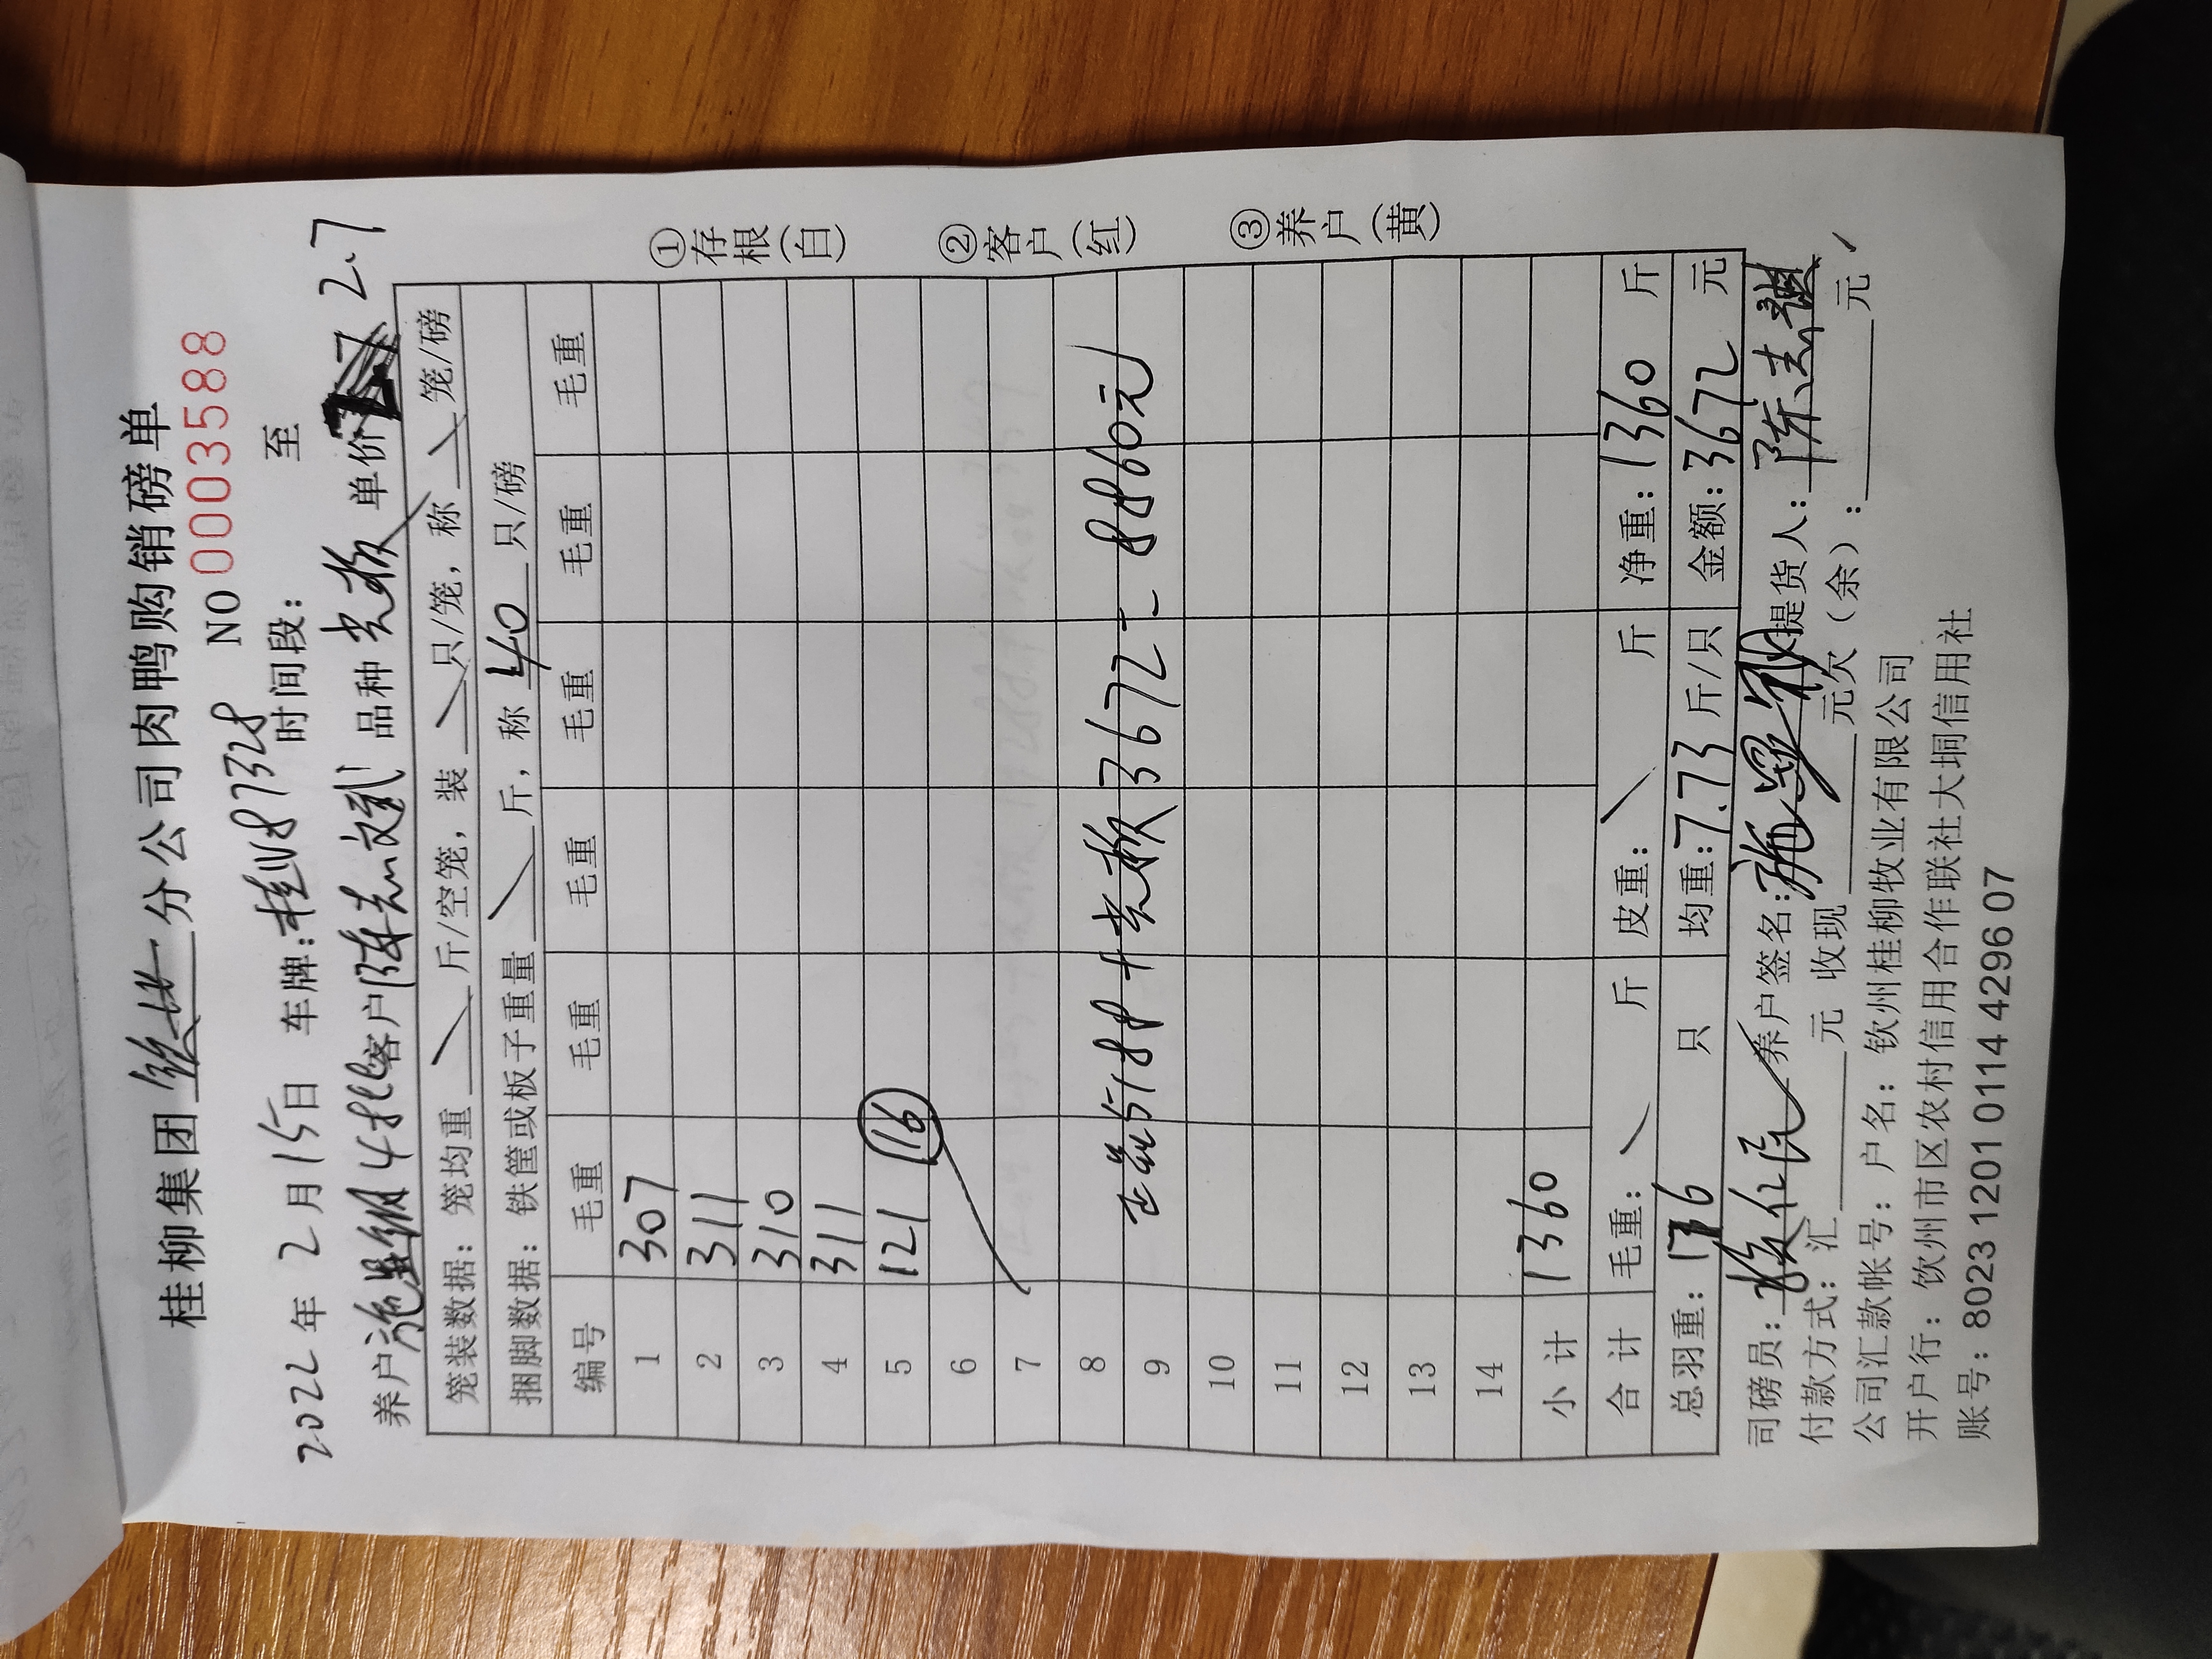 桂柳集团 分公司肉鸭购销磅单
2022年2月15日 车牌:桂N87328 NO 0003588
时间段: 至
养户施 4批 客户陈志斌 品种 单价 2.7
笼装数据: 笼均重 斤/空笼, 装 只/笼, 称 笼/磅
捆脚数据: 铁筐或板子重量 斤, 称 40 只/磅
编号 毛重 毛重 毛重 毛重 毛重 毛重
1 307
2 311
3 310
4 311
5 121 16
6
7
8
9 正品5188+ 3672 = 8860元
10
11
12
13
14
小计 1360
合计 毛重: 斤 皮重: 斤 净重: 1360 斤
总羽重: 176 只 均重: 7.73 斤/只 金额: 3672 元
司磅员: 养户签名: 施 提货人: 陈志
付款方式: 汇 元 收现 元欠(余): 元
公司汇款帐号: 户名: 钦州桂柳牧业有限公司
开户行: 钦州市区农村信用合作联社大垌信用社
账号: 8023 1201 0114 4296 07
①存根(白)
②客户(红)
③养户(黄)